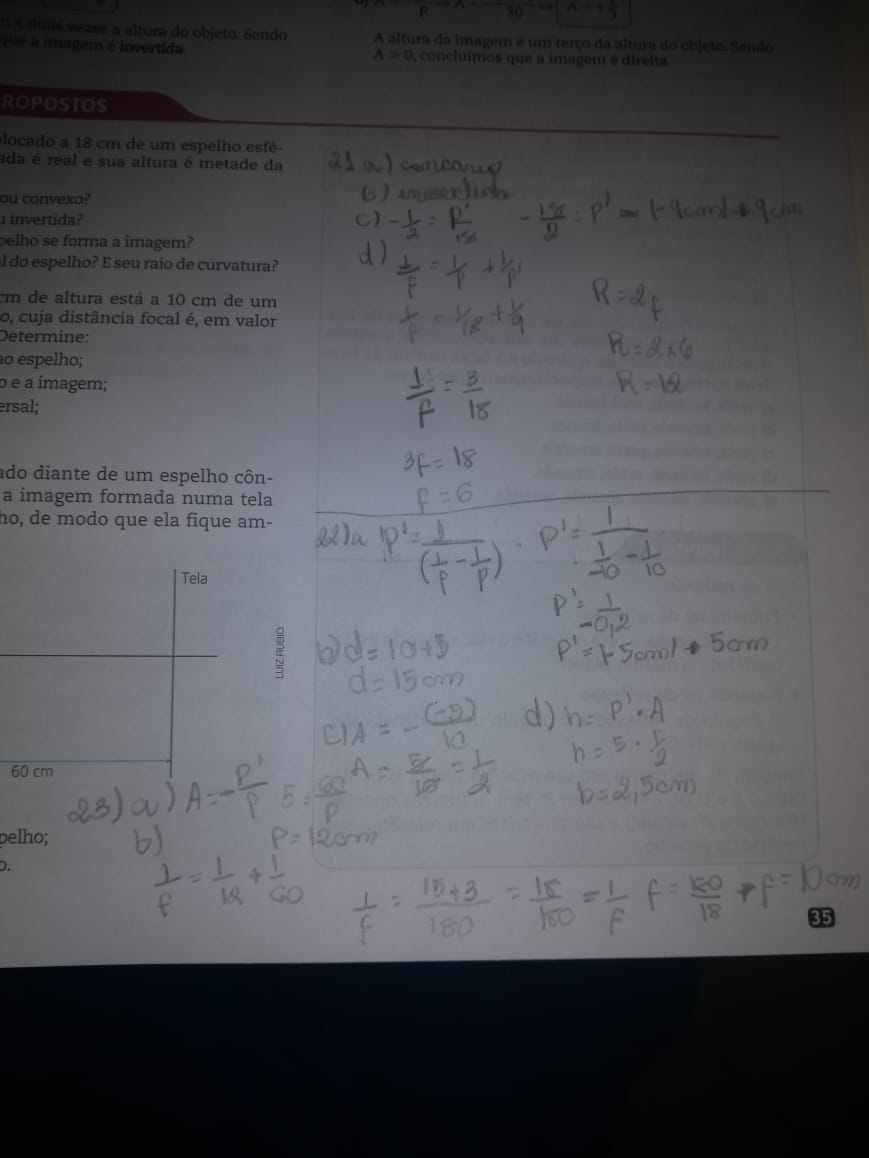 30
A altura da imagem é um terço da altura do objeto. Sendo
A > 0, concluímos que a imagem é direita.
m é duas vezes a altura do objeto. Sendo
que a imagem é invertida.
ROPOSTOS
olocado a 18 cm de um espelho esfé-
ada é real e sua altura é metade da
ou convexo?
u invertida?
pelho se forma a imagem?
l do espelho? E seu raio de curvatura?
cm de altura está a 10 cm de um
o, cuja distância focal é, em valor
Determine:
ao espelho;
o e a imagem;
ersal;
ado diante de um espelho côn-
a imagem formada numa tela
ho, de modo que ela fique am-
Tela
LUIZ RUBIO
60 cm
pelho;
o.
21 a)
b)
c) -1/2 = P'/18 -18/2 = P' = |-9cm| → 9cm
d) 1/f = 1/p + 1/p'
1/f = 1/18 + 1/9
1/f = 3/18
3f = 18
f = 6
R = 2f
R = 2 x 6
R = 12
22) a P' = 1/(1/f - 1/p) . P' = 1/(1/-10 - 1/10)
P' = 1/-0,2
P' = |-5cm| → 5cm
b) d = 10+5
d = 15cm
c) A = -(-5)/10
A = 5/10 = 1/2
d) h = P' . A
h = 5 . 1/2
h = 2,5cm
23) a) A = -P'/P 5 = 60/P
P = 12cm
b)
1/f = 1/12 + 1/60
1/f = 15+3/180 = 18/180 = 1/f f = 180/18 → f = 10cm
35